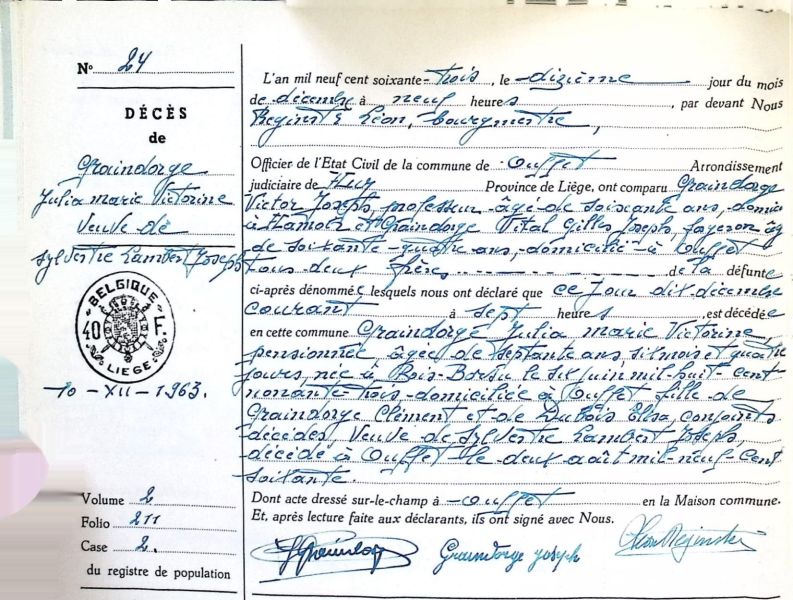 N° 24
DÉCÈS
de
Graindorge
Julia Marie Victorine
Veuve de
Sylvestre Lambert Joseph
BELGIQUE
40 F.
LIEGE
10-XII-1963.
Volume 2
Folio 211
Case 2.
du registre de population
L'an mil neuf cent soixante-trois, le dizième jour du mois
de décembre à neuf heures, par devant Nous
Léon, bourgmestre,
Officier de l'Etat Civil de la commune de Ouffet Arrondissement
judiciaire de Huy Province de Liège, ont comparu Graindorge
Victor Joseph, professeur âgé de soixante ans, domicilié
à Hamoir et Graindorge Vital Gilles Joseph, âgé
de soixante-quatre ans, domicilié à Ouffet
tous deux frères de la défunte
ci-après dénommée lesquels nous ont déclaré que ce jour dix décembre
courant à sept heures, est décédée
en cette commune Graindorge Julia Marie Victorine,
pensionnée, âgée de septante ans six mois et quatre
jours, née à Bois-Borsu le six juin mil huit cent
nonante-trois domiciliée à Ouffet fille de
Graindorge Clément et de Dubois Elisa, conjoints
décédés, Veuve de Sylvestre Lambert Joseph,
décédé à Ouffet le deux août mil-neuf-cent
soixante.
Dont acte dressé sur-le-champ à Ouffet en la Maison commune.
Et, après lecture faite aux déclarants, ils ont signé avec Nous.
Graindorge Joseph